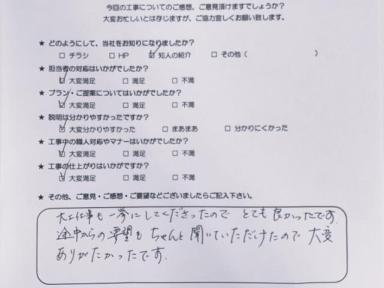 今回の工事についてのご感想、ご意見頂けますでしょうか?
大変お忙しいとは存じますが、ご協力宜しくお願い致します。
★ どのようにして、当社をお知りになりましたか?
□ チラシ □ HP ☑ 知人の紹介 □ その他 ( )
★ 担当者の対応はいかがでしたか?
☑ 大変満足 □ 満足 □ 不満
★ プラン・ご提案についてはいかがでしたか?
☑ 大変満足 □ 満足 □ 不満
★ 説明は分かりやすかったですか?
☑ 大変分かりやすかった □ まあまあ □ 分かりにくかった
★ 工事中の職人対応やマナーはいかがでしたか?
☑ 大変満足 □ 満足 □ 不満
★ 工事の仕上がりはいかがですか?
☑ 大変満足 □ 満足 □ 不満
★ その他、ご意見・ご感想・ご要望などございましたらご記入下さい。
大工仕事も一緒にしてくださったので とても良かったです。
途中からの要望も ちゃんと聞いていただけたので 大変
ありがたかったです。